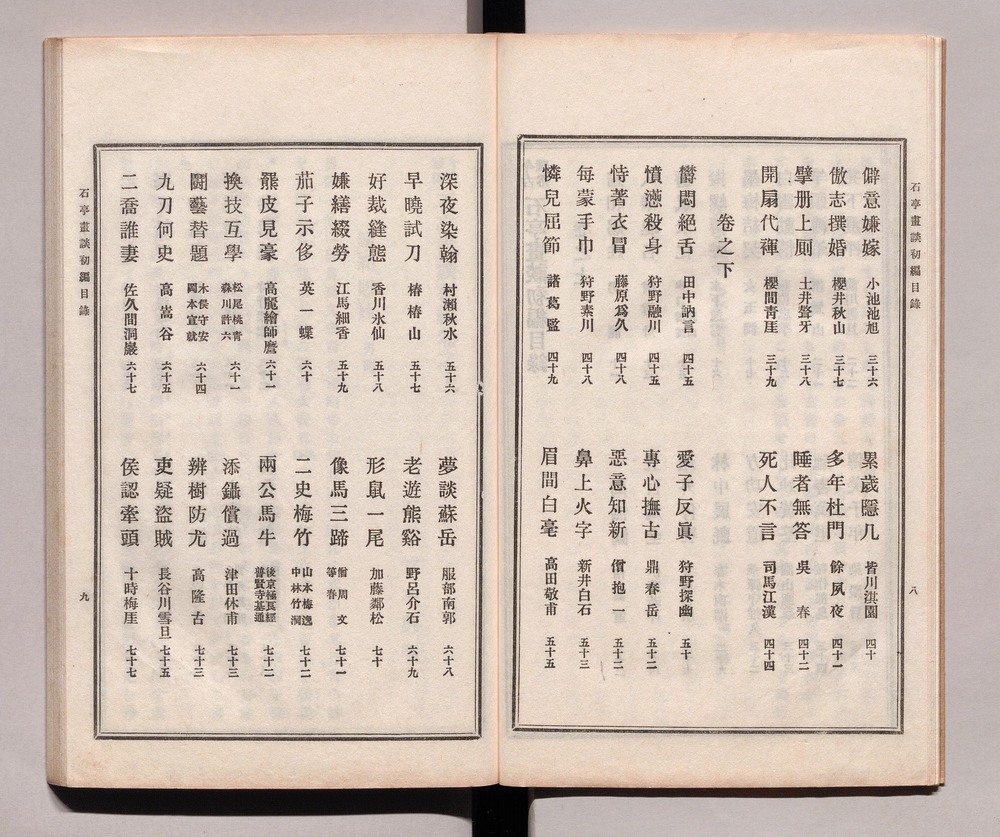 石亭畫談初編目錄
僻意嫌嫁 小池池旭 三十六
傲志撰婚 櫻井秋山 三十七
擘册上厠 土井聱牙 三十八
開扇代褌 櫻間青厓 三十九
累歲隱几 皆川淇園 四十
多年杜門 餘夙夜 四十一
睡者無答 吳春 四十二
死人不言 司馬江漢 四十四
卷之下
欝悶絕舌 田中訥言 四十五
憤懣殺身 狩野融川 四十五
恃著衣冒 藤原爲久 四十八
每蒙手巾 狩野素川 四十八
憐兒屈節 諸葛監 四十九
愛子反眞 狩野探幽 五十
專心撫古 鼎春岳 五十二
惡意知新 僧抱一 五十二
鼻上火字 新井白石 五十三
眉間白毫 高田敬甫 五十五
八
深夜染翰 村瀨秋水 五十六
早曉試刀 椿椿山 五十七
好裁縫態 香川氷仙 五十八
嫌繕綴勞 江馬細香 五十九
茄子示侈 英一蝶 六十
羆皮見豪 高麗繪師麿 六十一
換技互學 松尾桃青 森川許六 六十一
鬪藝替題 木俣守安 岡本宣就 六十四
九刀何史 高嵩谷 六十五
二喬誰妻 佐久間洞巖 六十七
夢談蘇岳 服部南郭 六十八
老遊熊谿 野呂介石 六十九
形鼠一尾 加藤鄰松 七十
像馬三蹄 僧周文 等春 七十一
二史梅竹 山本梅逸 中林竹洞 七十二
兩公馬牛 後京極良經 普賢寺基通 七十二
添鑷償過 津田休甫 七十三
辨樹防尤 高隆古 七十三
吏疑盜賊 長谷川雪旦 七十五
侯認牽頭 十時梅厓 七十七
石亭畫談初編目錄
九